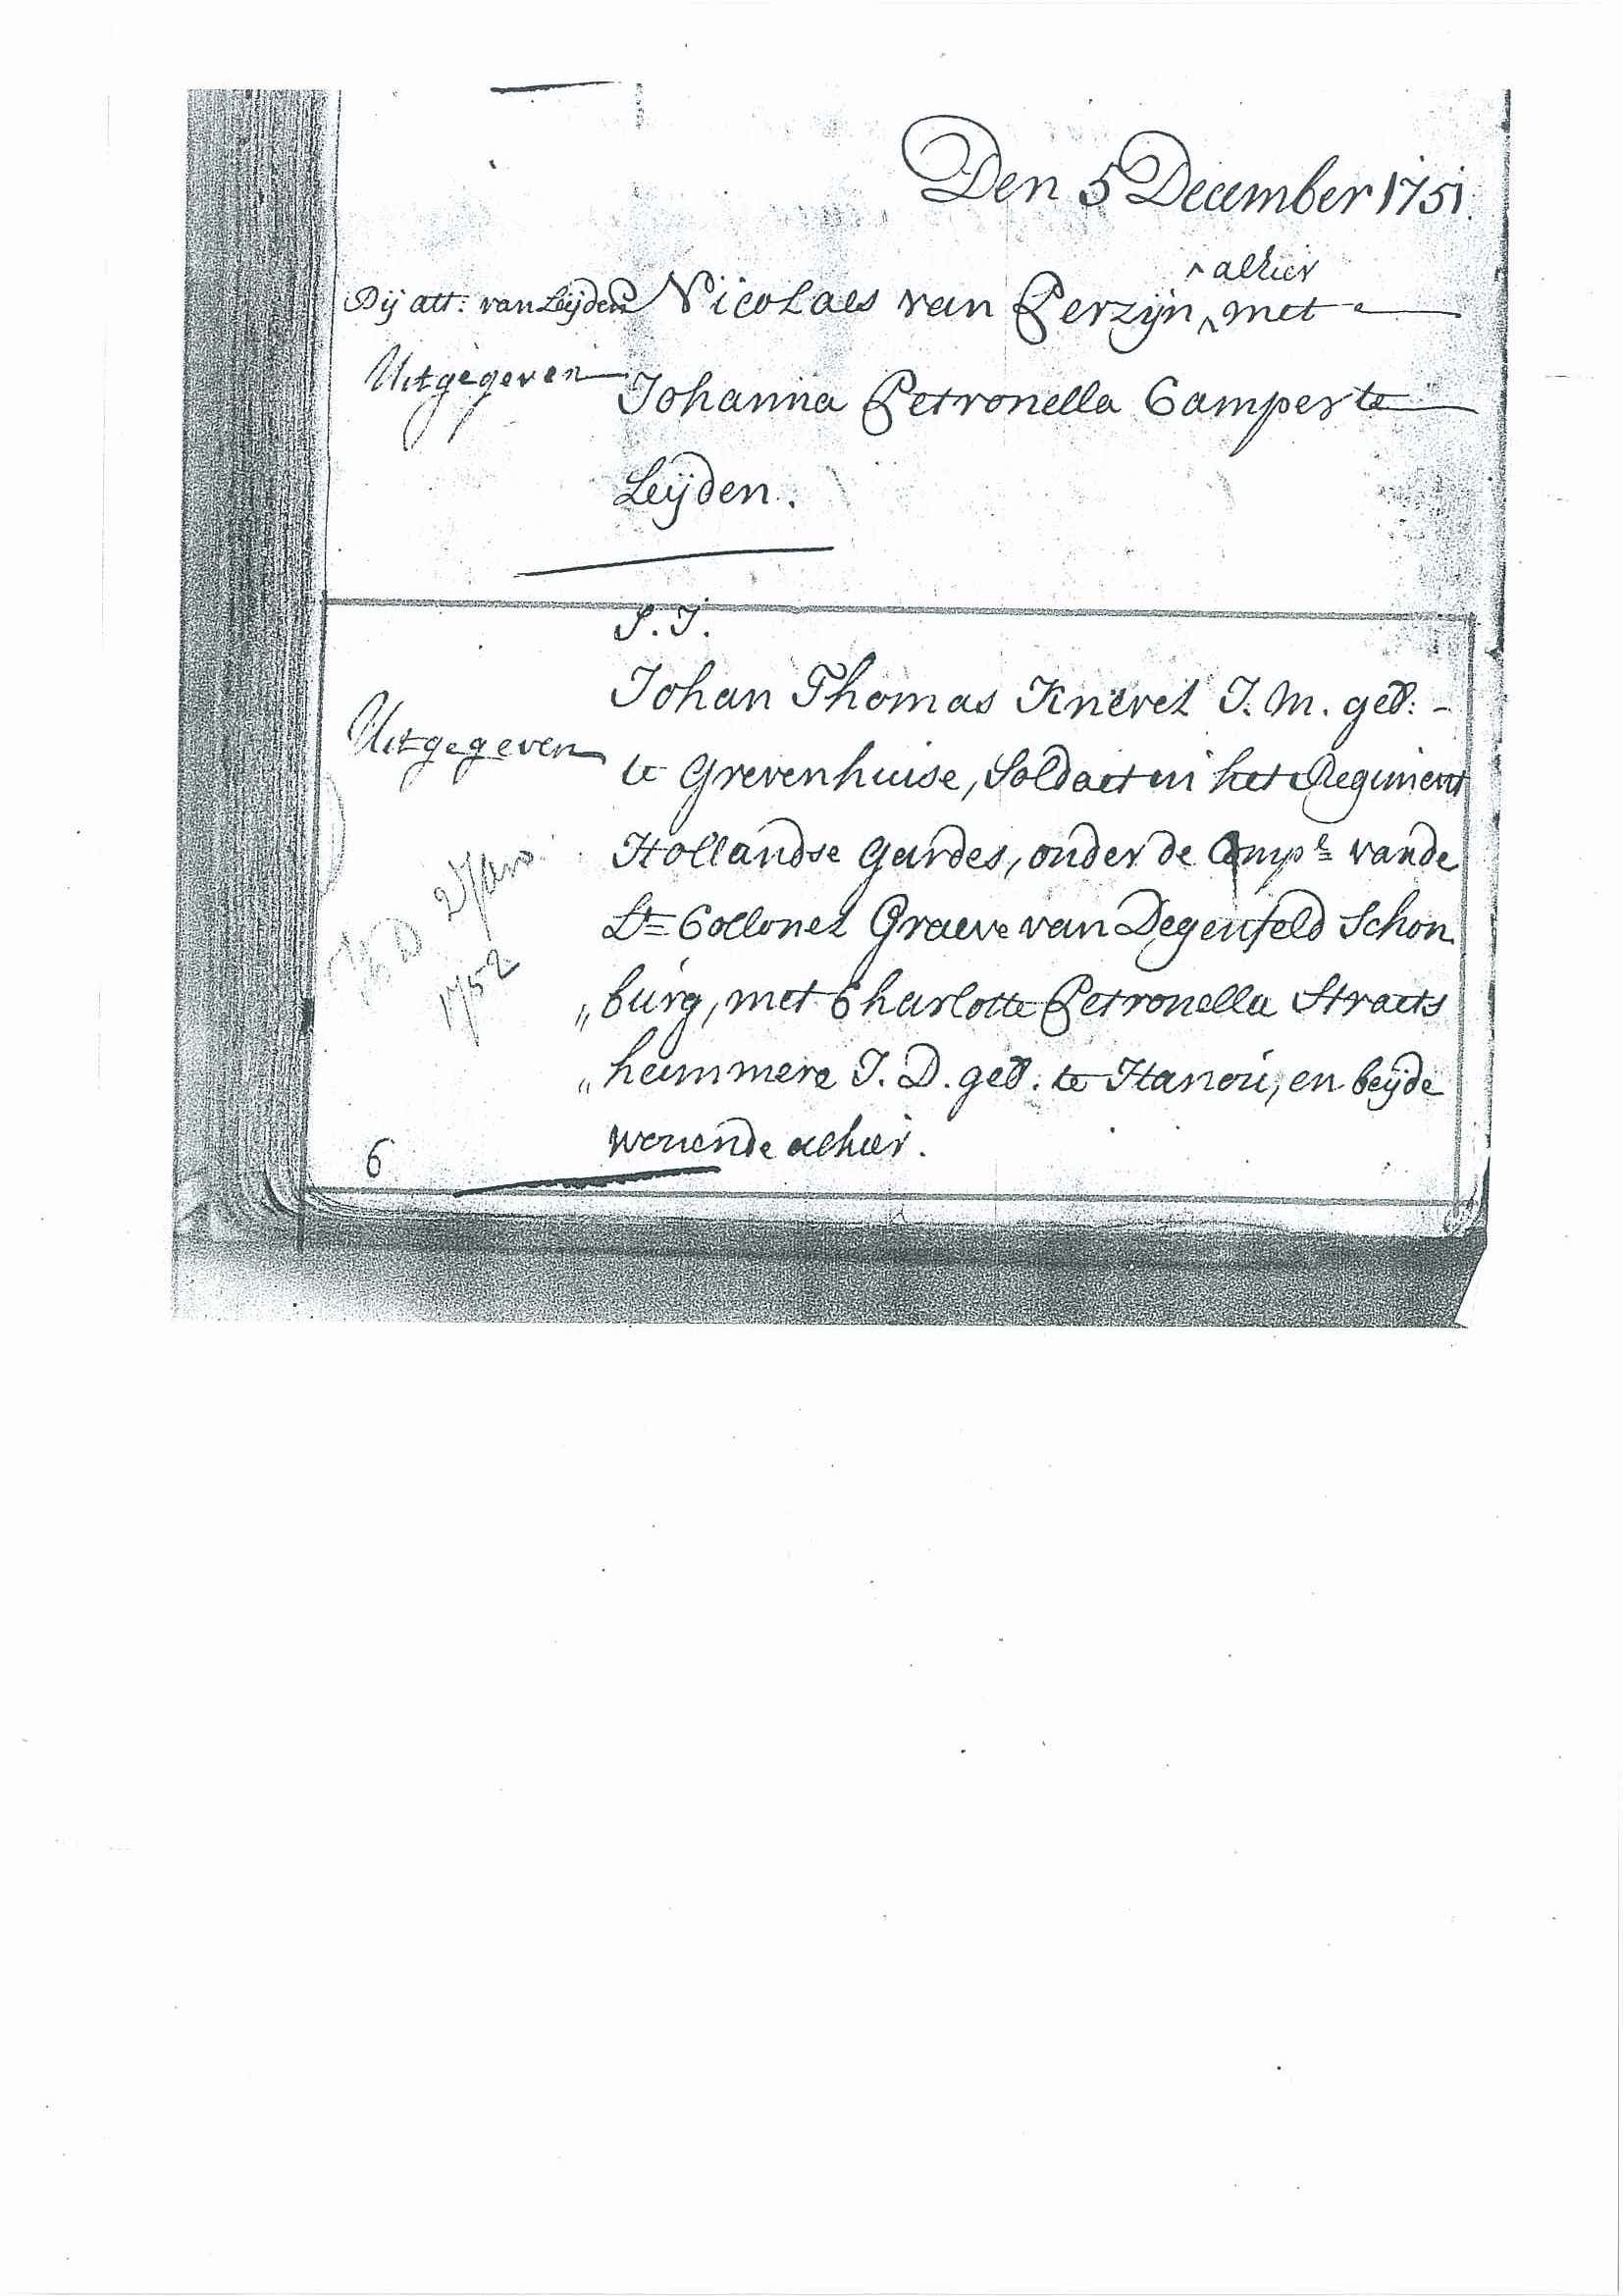 Den 5 December 1751.
Bij att: van Leijden Nicolaes van Perzijn ^ alhier met
Uitgegeven Johanna Petronella Camper te
Leijden.
P. J.
Johan Thomas Knevel J. M. geb:
Uitgegeven te Grevenhuise, Soldaet in het Regiment
Hollandse Gardes, onder de Compe vande
Lt Collonel Graeve van Degenfeld Schon
„burg, met Charlotte Petronella Straets
„heimmere J. D. geb. te Hanou, en beijde
wonende alhier.
1752
6